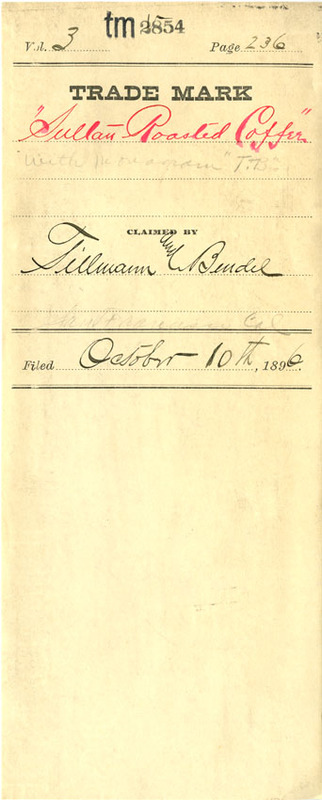 tm 2854
Vol. 3 Page 236
TRADE MARK
"Sultan Roasted Coffee"
with Monogram "T.B."
CLAIMED BY
Tillmann and Bendel
Cal
Filed October 10th, 1896.